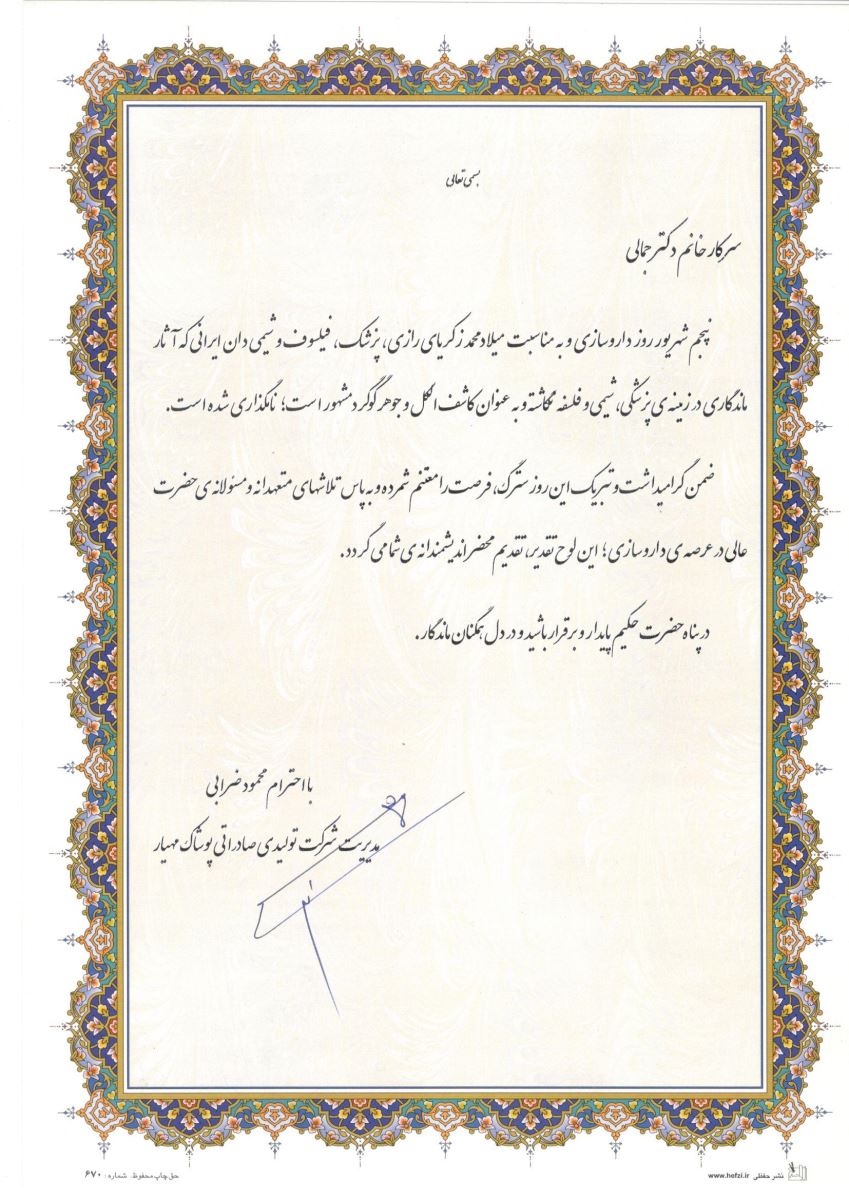 بسمی تعالی
سرکار خانم دکتر جمالی
پنجم شهریور روز داروسازی و به مناسبت میلاد محمد زکریای رازی، پزشک، فیلسوف و شیمی دان ایرانی که آثار
ماندگاری در زمینه ی پزشکی، شیمی و فلسفه نگاشته و به عنوان کاشف الکل و جوهر گوگرد مشهور است؛ نامگذاری شده است.
ضمن گرامیداشت و تبریک این روز سترگ، فرصت را مغتنم شمرده و به پاس تلاشهای متعهدانه و مسئولانه ی حضرت
عالی در عرصه ی داروسازی؛ این لوح تقدیر، تقدیم محضر اندیشمندانه ی شما می گردد.
در پناه حضرت حکیم پایدار و برقرار باشید و در دل همگنان ماندگار.
با احترام محمود ضرابی
مدیریت شرکت تولیدی صادراتی پوشاک مهیار
حق چاپ محفوظ. شماره: ۶۷۰
نشر حفظی www.hefzi.ir